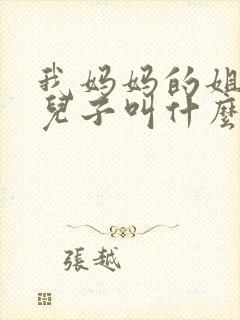 我妈妈的姐
兒子叫什麽
張越